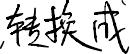 转换成